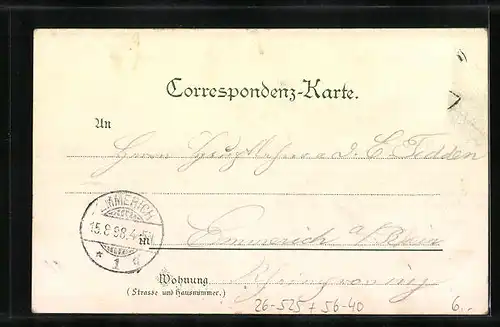 Correspondenz-Karte.
An
Herrn Hauptlehrer a. D. E. Fedden
EMMERICH
15.8.98.4-5N
* 1 d
in
Emmerich a/Rhein
Wohnung
(Strasse und Hausnummer.)
26-525 + 56-40
6.-